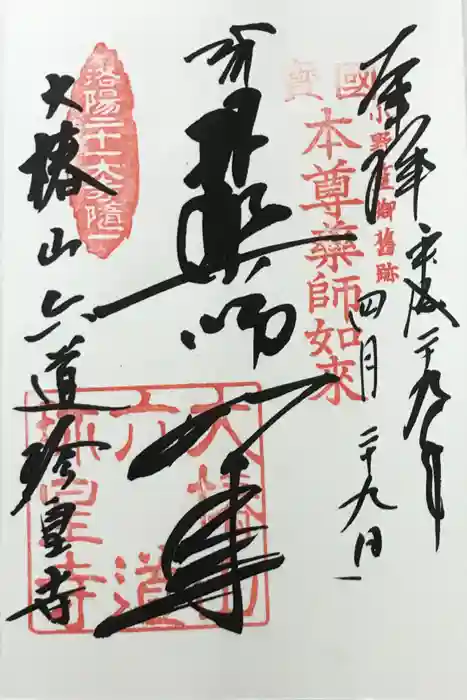 奉拝
平成二十九年
四月二十九日
小野篁御舊跡
國寶
本尊薬師如来
薬師如来
洛陽二十一大寺随一
大椿山六道珍皇寺
大椿山
六道
珍皇寺